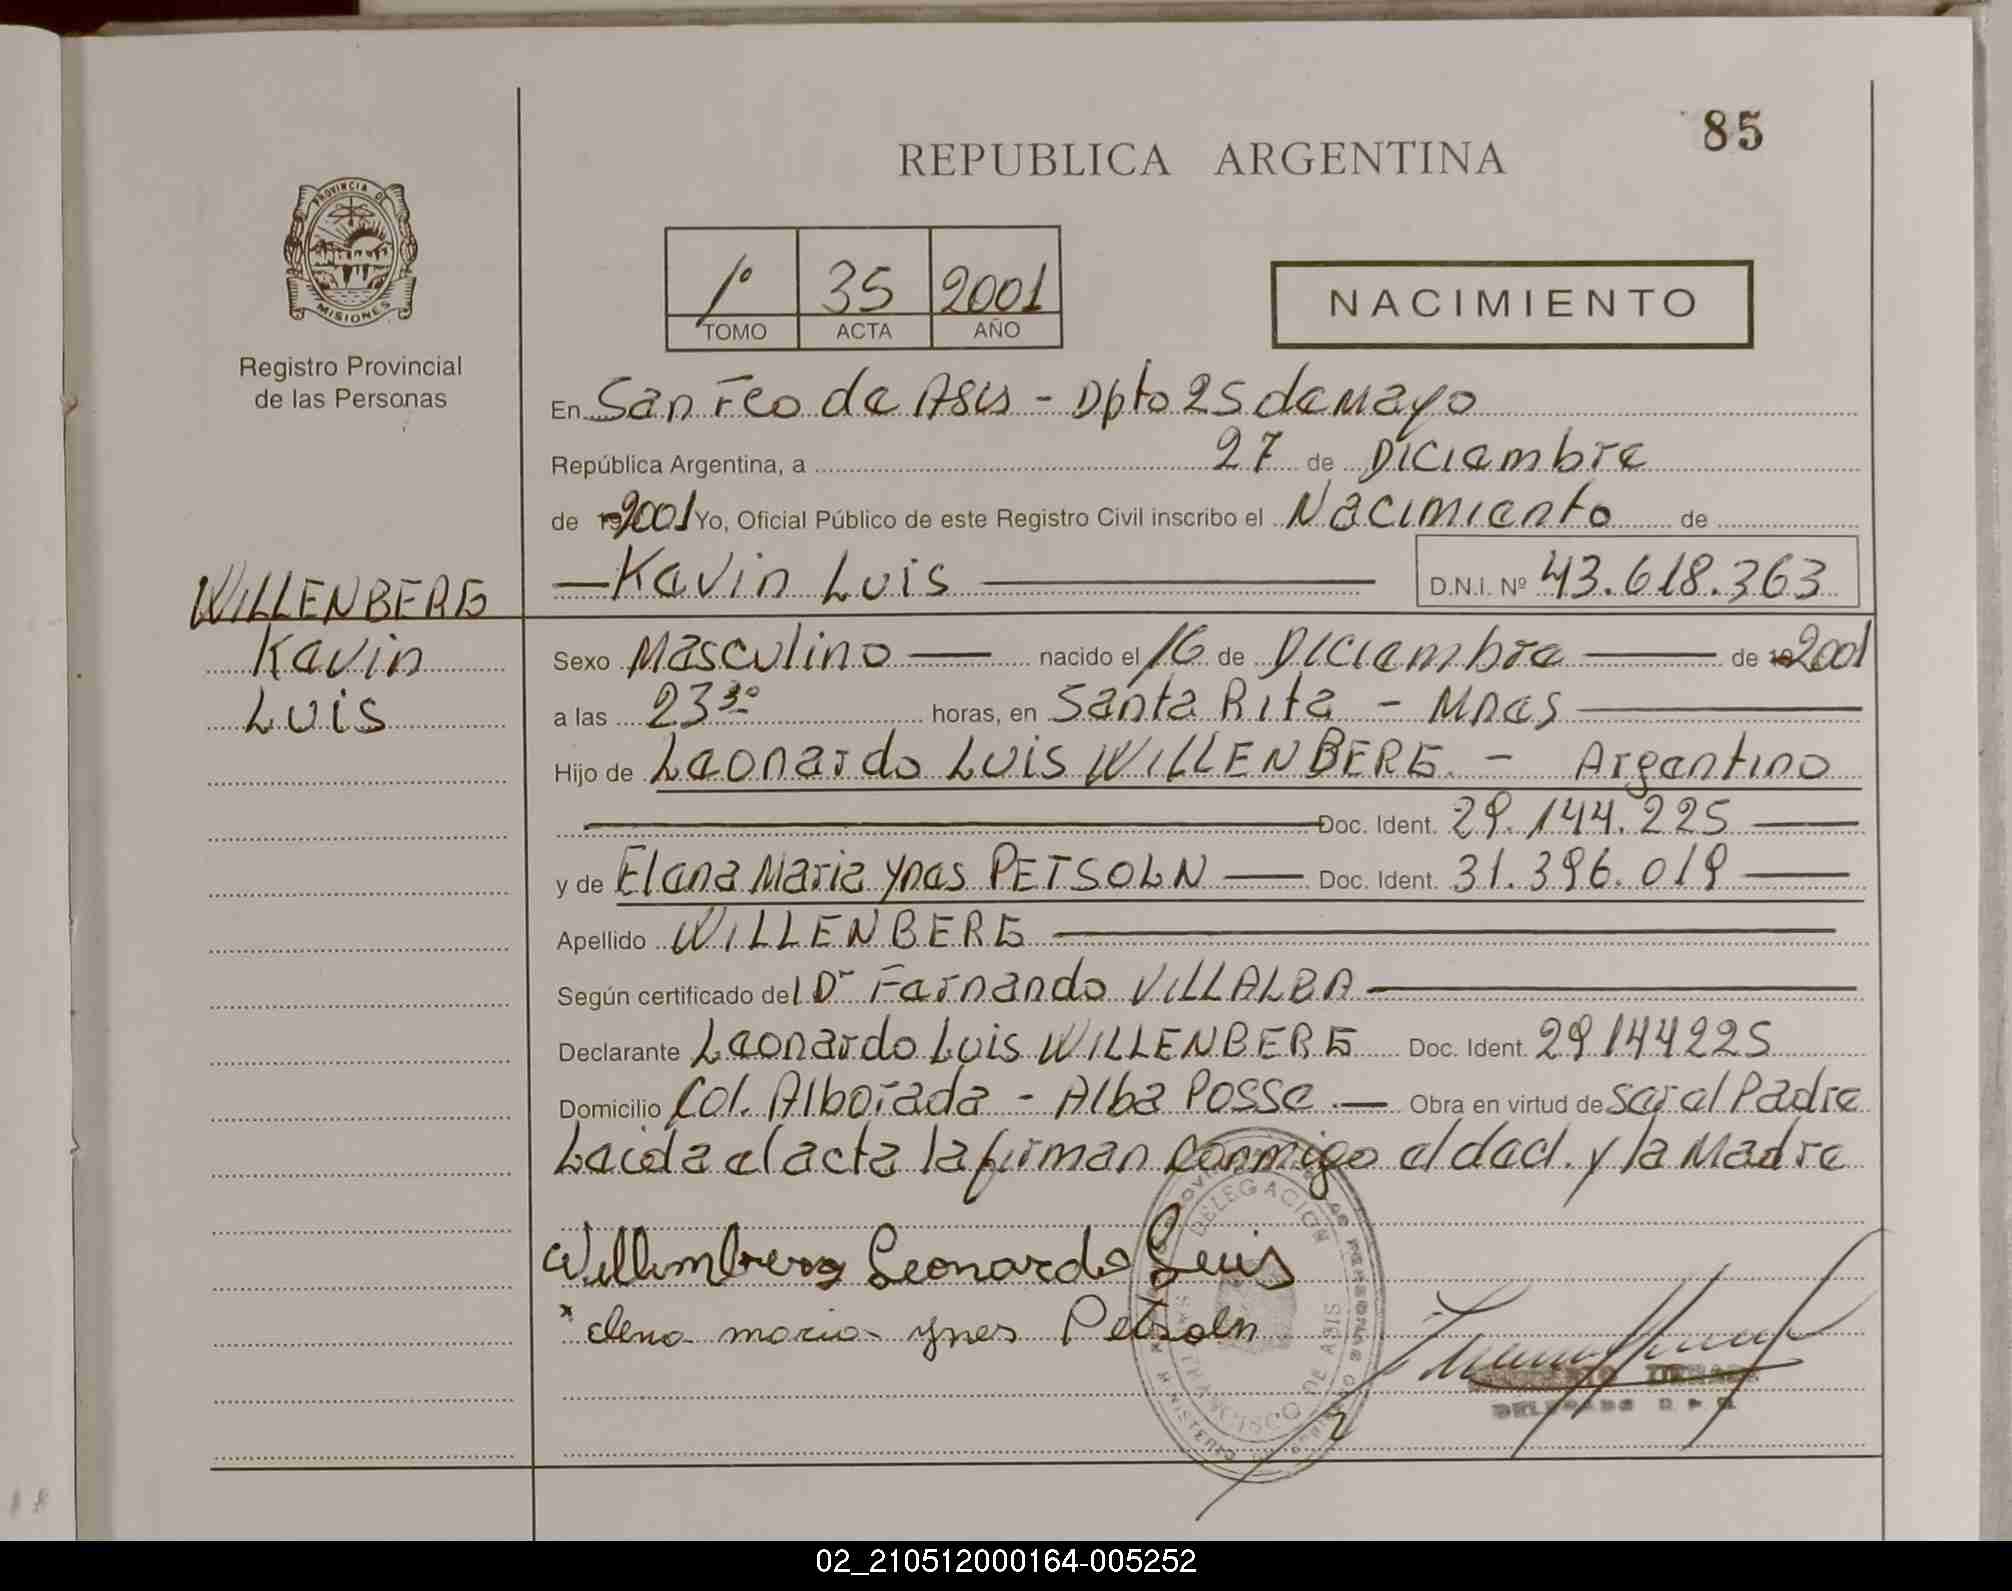 85
REPUBLICA ARGENTINA
PROVINCIA DE
MISIONES
Registro Provincial
de las Personas
1º 35 2001
TOMO ACTA AÑO
NACIMIENTO
En San Fco de Asis - Dpto 25 de Mayo
República Argentina, a 27 de Diciembre
de 2001 Yo, Oficial Público de este Registro Civil inscribo el Nacimiento de
Kevin Luis D.N.I. Nº 43.618.363
WILLENBERG
Kevin
Luis
Sexo Masculino nacido el 16 de Diciembre de 2001
a las 23 30 horas, en Santa Rita - Mnes
Hijo de Leonardo Luis WILLENBERG. - Argentino
Doc. Ident. 29.144.225
y de Elena Maria Ynes PETSOLN Doc. Ident. 31.396.019
Apellido WILLENBERG
Según certificado del Dr Fernando VILLALBA
Declarante Leonardo Luis WILLENBERG Doc. Ident. 29144225
Domicilio Col. Alborada - Alba Posse. Obra en virtud de ser el Padre
Leida el acta la firman conmigo el decl. y la Madre
Willenberg Leonardo Luis
x elena maria ynes Petsoln
DELEGACION
SAN FRANCISCO DE ASIS
02_210512000164-005252